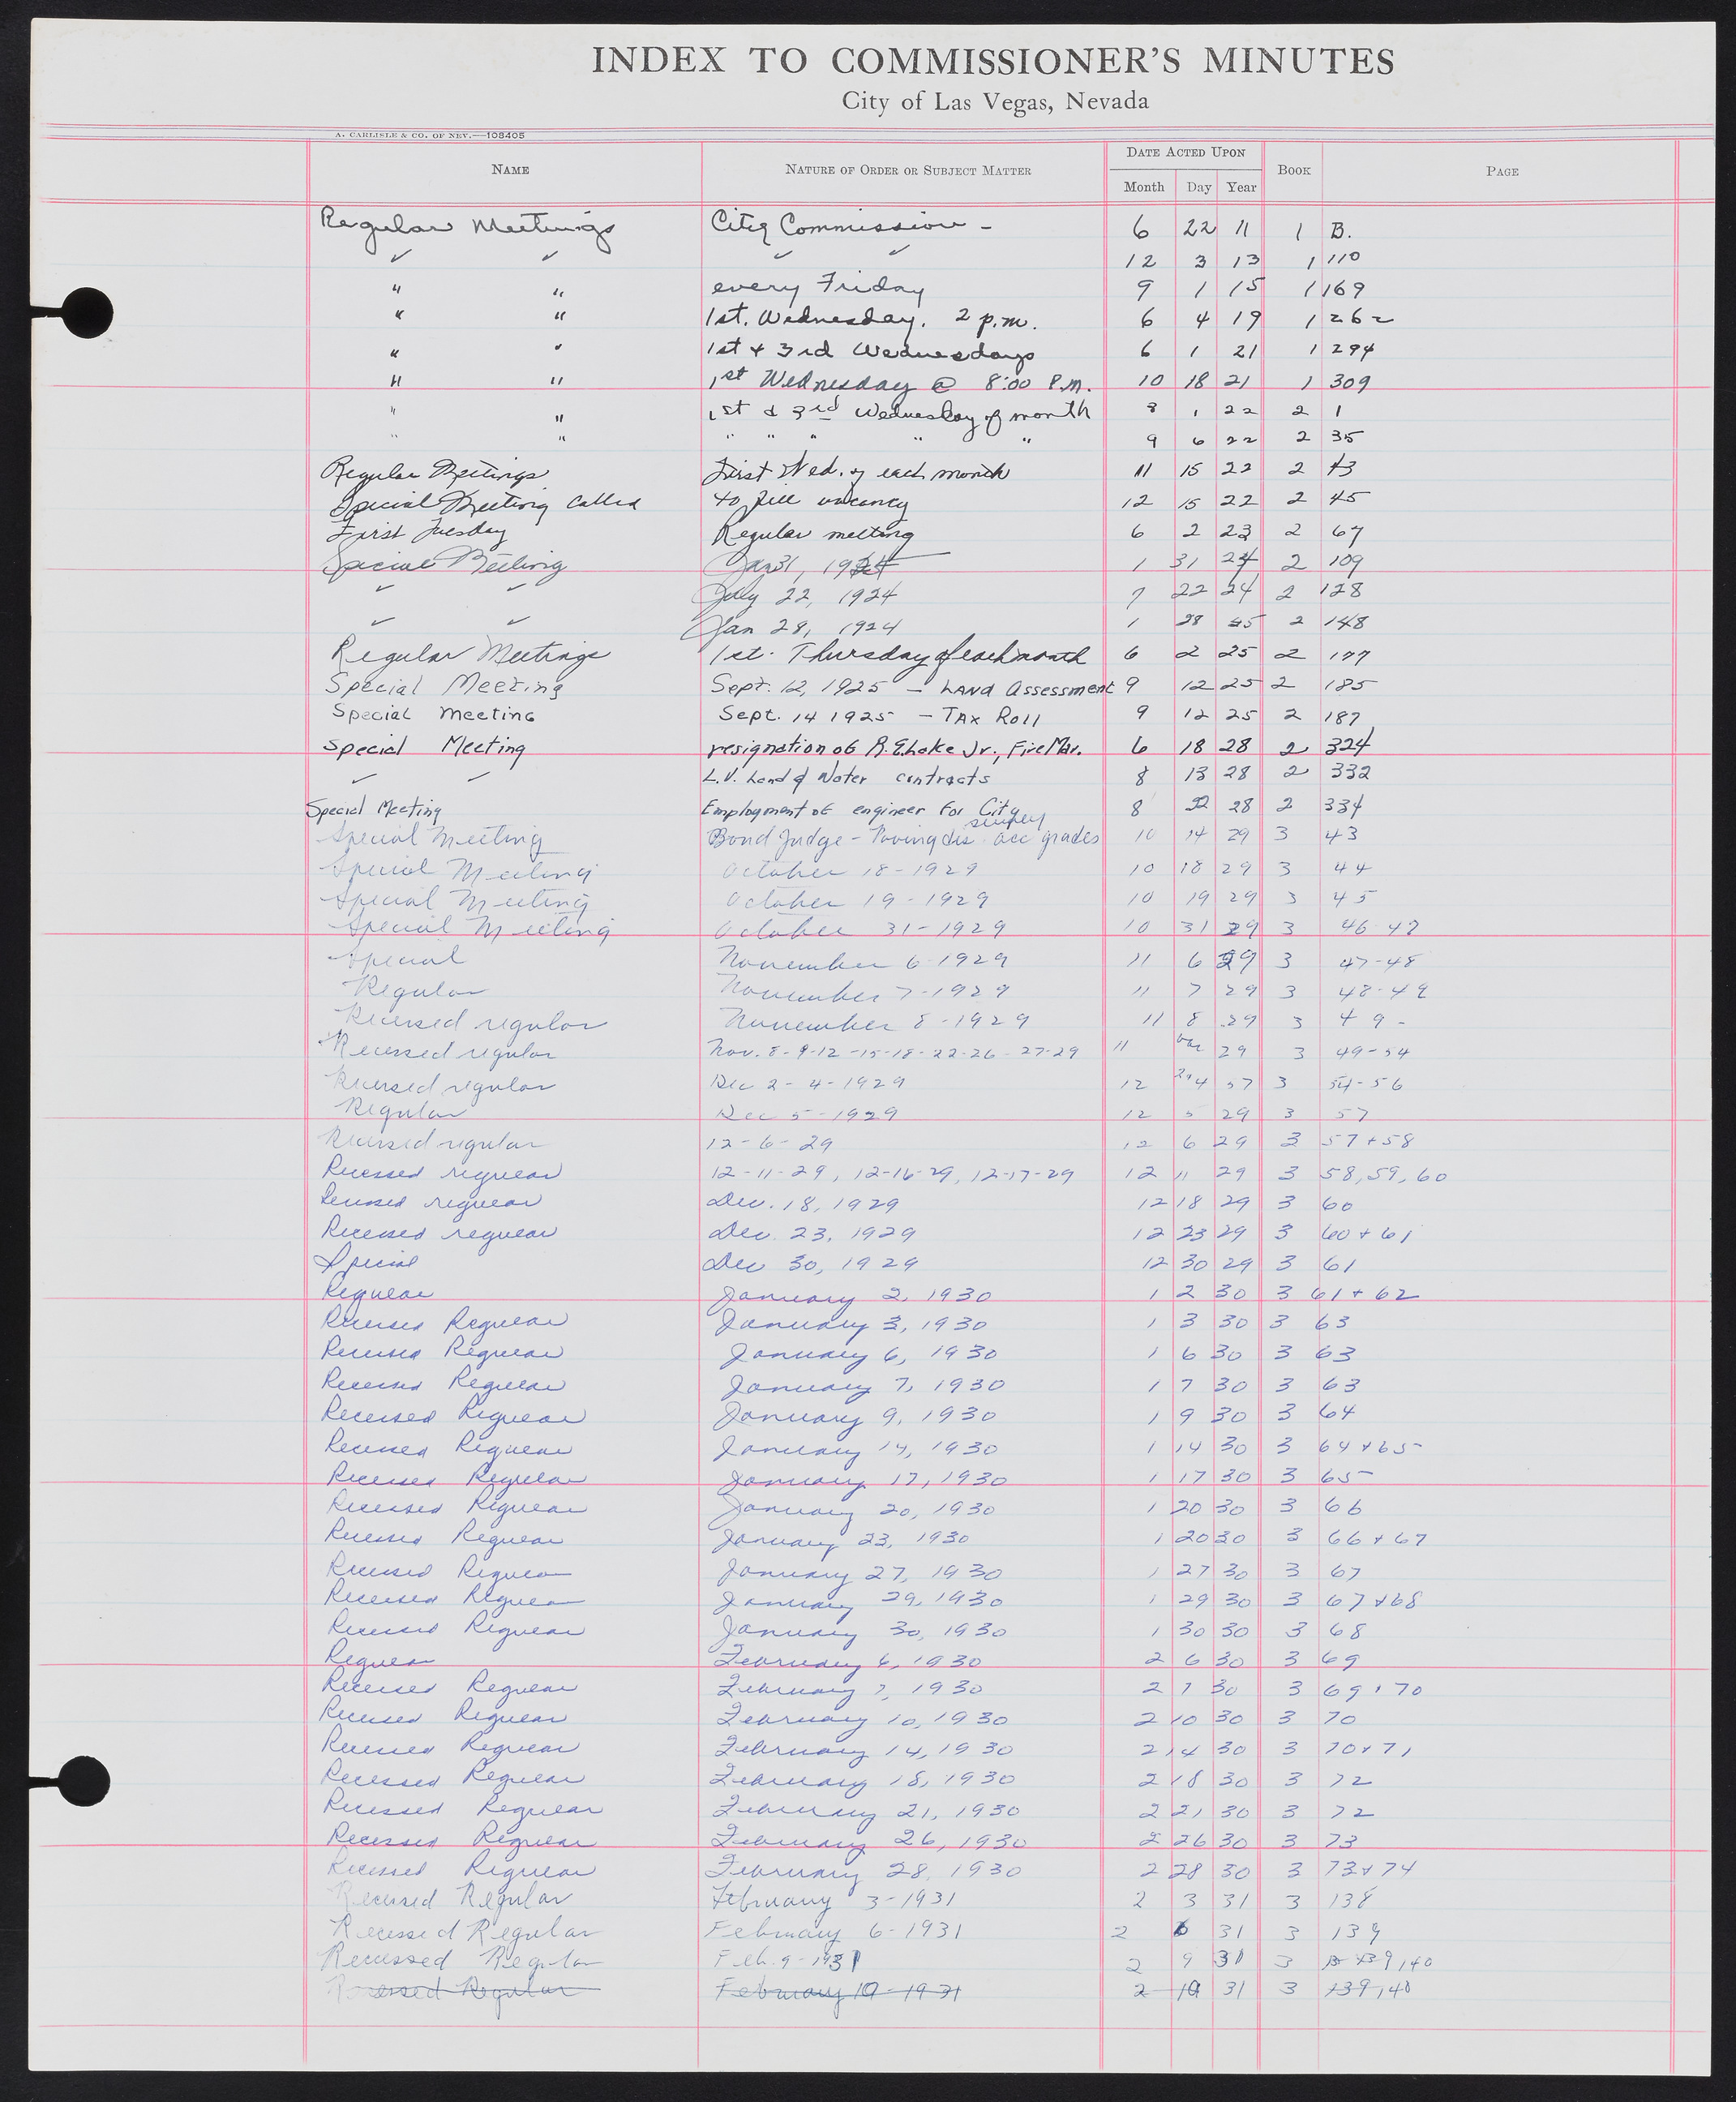 INDEX TO COMMISSIONER'S MINUTES
City of Las Vegas, Nevada
A. CARLISLE & CO. OF NEV.—108405
NAME NATURE OF ORDER OR SUBJECT MATTER DATE ACTED UPON BOOK PAGE
Month Day Year
Regular Meetings City Commission - 6 22 11 1 B.
✓ ✓ ✓ ✓ 12 3 13 1 110
" " every Friday 9 1 15 1 169
" " 1st. Wednesday. 2 p.m. 6 4 19 1 262
" " 1st + 3rd Wednesdays 6 1 21 1 294
" " 1st Wednesday @ 8:00 P.M. 10 18 21 1 309
" " 1st & 3rd Wednesday of month 8 1 22 2 1
" " " " " " " 9 6 22 2 35
Regular Meetings First Wed. of each month 11 15 22 2 43
Special Meeting Called to fill vacancy 12 15 22 2 45
First Tuesday Regular meeting 6 2 23 2 67
Special Meeting Jan 31, 1924 1 31 24 2 109
✓ ✓ July 22, 1924 7 22 24 2 128
✓ ✓ Jan 28, 1924 1 28 25 2 148
Regular Meetings 1st. Thursday of each month 6 2 25 2 177
Special Meeting Sept. 12, 1925 - Land Assessment 9 12 25 2 185
Special Meeting Sept. 14 1925 - Tax Roll 9 12 25 2 187
Special Meeting resignation of R. E. Lake Jr., Fire Mar. 6 18 28 2 324
✓ ✓ L.V. Land & Water contracts 8 13 28 2 332
Special Meeting Employment of engineer For City 8 22 28 2 334
survey
Special Meeting Bond Judge - Paving dis. acc grades 10 14 29 3 43
Special Meeting October 18-1929 10 18 29 3 44
Special Meeting October 19-1929 10 19 29 3 45
Special Meeting October 31-1929 10 31 29 3 46-47
Special November 6-1929 11 6 29 3 47-48
Regular November 7-1929 11 7 29 3 48-49
Recessed regular November 8-1929 11 8 29 3 49-
Recessed regular Nov. 8-9-12-15-18-22-26-27-29 11 Var 29 3 49-54
Recessed regular Dec 2-4-1929 12 2,4 57 3 54-56
Regular Dec 5-1929 12 5 29 3 57
Recessed regular 12-6-29 12 6 29 3 57+58
Recessed regular 12-11-29, 12-16-29, 12-17-29 12 11 29 3 58, 59, 60
Recessed regular Dec. 18, 1929 12 18 29 3 60
Recessed regular Dec. 23, 1929 12 23 29 3 60 + 61
Special Dec 30, 1929 12 30 29 3 61
Regular January 2, 1930 1 2 30 3 61 + 62
Recessed Regular January 3, 1930 1 3 30 3 63
Recessed Regular January 6, 1930 1 6 30 3 63
Recessed Regular January 7, 1930 1 7 30 3 63
Recessed Regular January 9, 1930 1 9 30 3 64
Recessed Regular January 14, 1930 1 14 30 3 64 + 65
Recessed Regular January 17, 1930 1 17 30 3 65
Recessed Regular January 20, 1930 1 20 30 3 66
Recessed Regular January 23, 1930 1 20 30 3 66 + 67
Recessed Regular January 27, 1930 1 27 30 3 67
Recessed Regular January 29, 1930 1 29 30 3 67 + 68
Recessed Regular January 30, 1930 1 30 30 3 68
Regular February 6, 1930 2 6 30 3 69
Recessed Regular February 7, 1930 2 7 30 3 69 + 70
Recessed Regular February 10, 1930 2 10 30 3 70
Recessed Regular February 14, 1930 2 14 30 3 70 + 71
Recessed Regular February 18, 1930 2 18 30 3 72
Recessed Regular February 21, 1930 2 21 30 3 72
Recessed Regular February 26, 1930 2 26 30 3 73
Recessed Regular February 28, 1930 2 28 30 3 73 + 74
Recessed Regular February 3-1931 2 3 31 3 138
Recessed Regular February 6-1931 2 6 31 3 139
Recessed Regular Feb. 9-1931 2 9 31 3 139,140
Recessed Regular February 10-1931 2 10 31 3 139,140